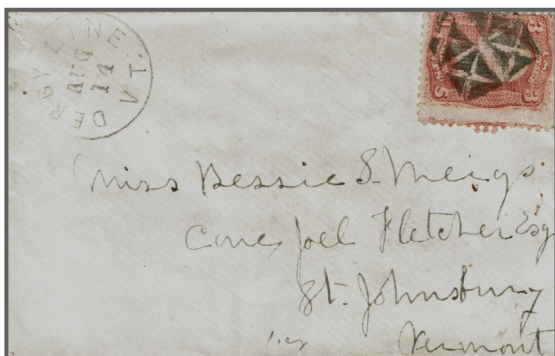 DERBY LINE. VT
AUG
14
3
Miss Bessie S. Meigs
Care Joel Fletcher Esq
St. Johnsbury
Vermont